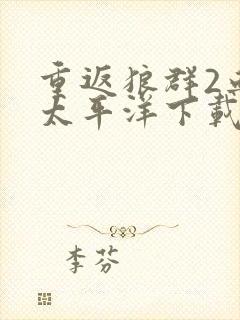 重返狼群2
太平洋下載
李芬